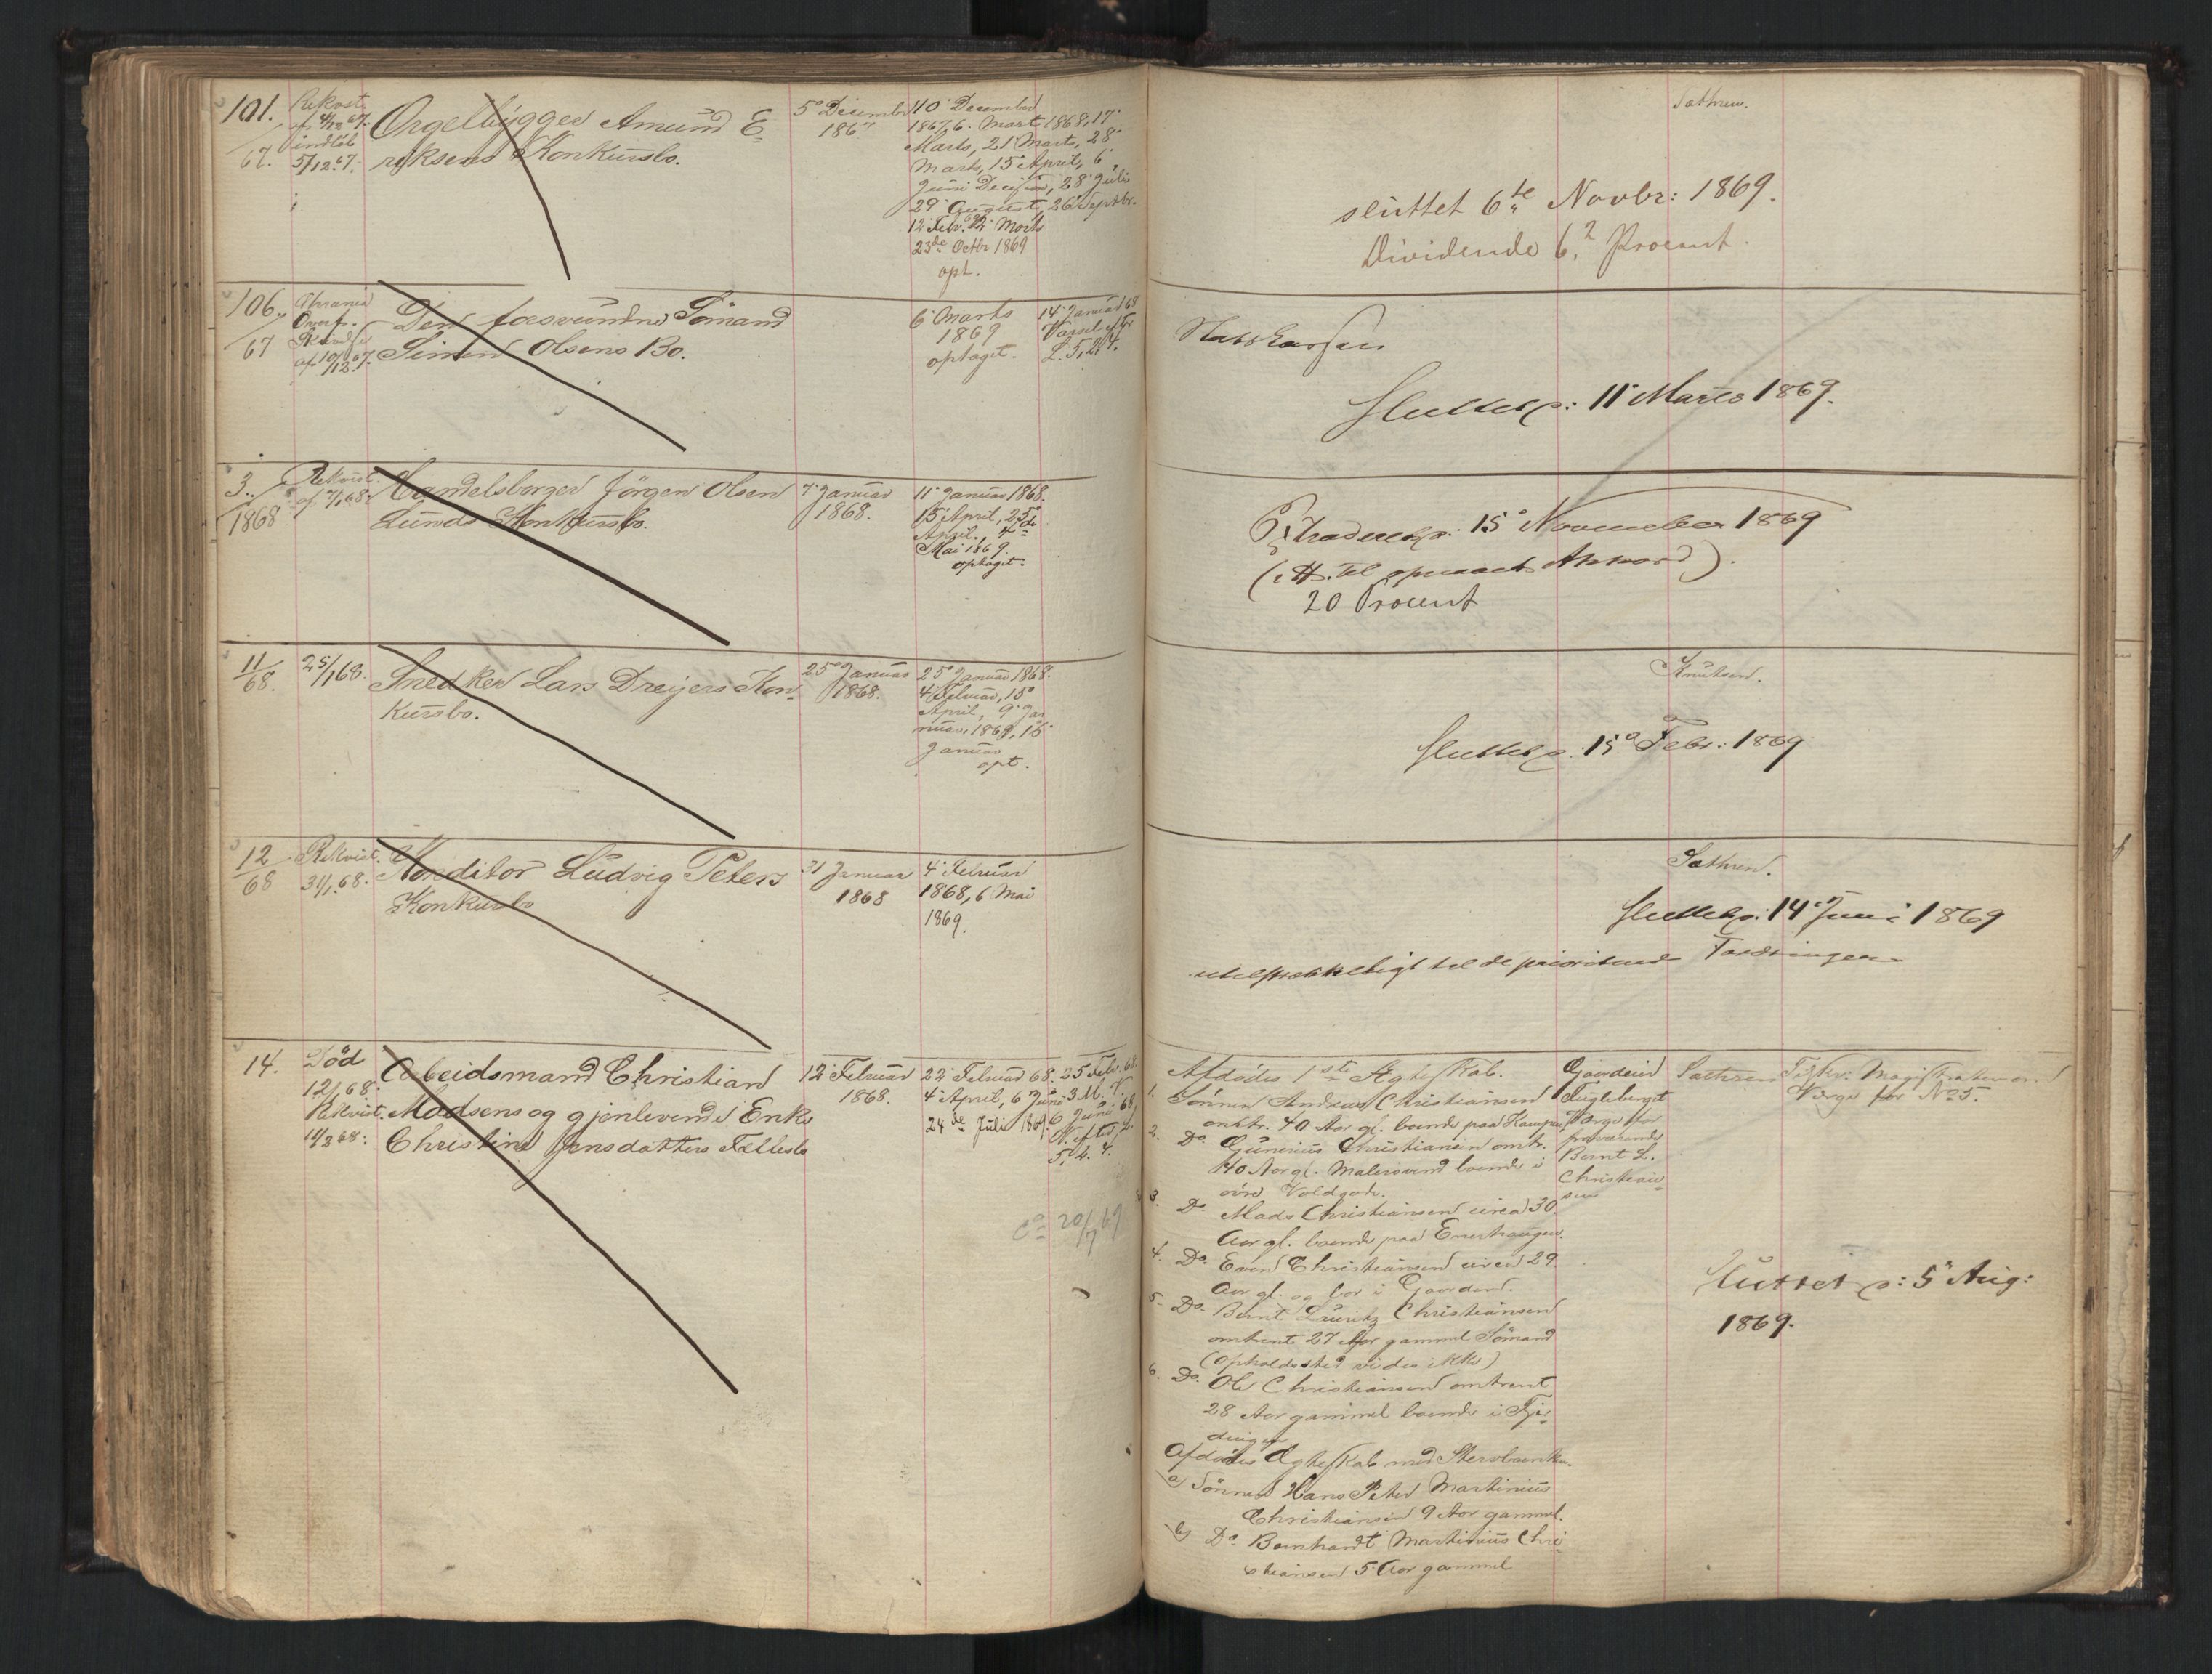 101.
67.
Rekvst.
af 4/12 67.
indløb
5/12 67.
Orgelbygger Amund E-
riksens Konkursbo.
5' Decembr
1867
10' December
1867, 6. Marts 1868, 17'
Marts, 21 Marts, 28'
Marts, 15' April, 6'
Juni Decision, 28' Juli
29' August, 26' Septbr.
12 Febr. 69 12' Marts
23de Octbr 1869
opt.
Sathren.
sluttet 6te Novbr: 1869.
Dividende 6,2 Procent.
106.
67
af 10/12 67.
Den forsvundne Sömand
Simen Olsens Bo.
6' Marts
1869
optaget.
14' Januar 68
Varsel efter
L. 5, 2, 4.
Sluttet p: 11' Marts 1869.
3.
1868
Rekvist.
af 7/1 68.
Handelsborger Jörgen Olsen
Lunds Konkursbo.
7' Januar
1868.
11' Januar 1868.
15' April, 25'
April, 4de
Mai 1869.
optaget.
Extraderet p: 15' November 1869
(i H. til opnaaet Akkord).
20 Procent
11/68.
25/1 68.
Snedker Lars Dreyers Kon-
kursbo.
25' Januar
1868.
25' Januar 1868.
4' Februar, 15'
April, 9' Ja-
nuar 1869, 16'
Januar
opt.
Knutsen.
Sluttet p: 15' Febr: 1869
12/68
Rekvist.
31/1 68.
Konditor Ludvig Peters
Konkursbo
31 Januar
1868
4' Februar
1868, 6 Mai
1869.
Sathren.
Sluttet p: 14' Juni 1869
utilstrækkeligt til de prioriterede Fordringer
14.
Död
12/1 68.
Rekvist.
11/2 68.
Arbeidsmand Christian
Madsens og gjenlevende Enke
Christine Jensdatters Fællesbo
12' Februar
1868.
22' Februar 68.
4' April, 6 Juni
24de Juli 1869.
25 Febr. 68.
3 M. V.
6 Juni 68
V. efter L.
5, 2. 4.
20/7 69
Afdödes 1ste Ægteskab.
1. Sönnen Andreas Christiansen
omtr. 40 Aar gl. boende paa Kampen
2. Do Gunerius Christiansen omtr.
40 Aar gl. Malersvend boende i
övre Voldgade.
3. Do Mads Christiansen circa 30
Aar gl. boende paa Enerhaugen.
4. Do. Even Christiansen circa 29
Aar gl. og bor i Gaarden.
5. Do. Bernt Lauritz Christiansen
omtrent 27 Aar gammel Sömand
(opholdssted vides ikke)
6. Do. Ole Christiansen omtrent
28 Aar gammel boende i Fjer-
dingen
Afdödes Ægteskab med Stervboenken.
a) Sönnen Hans Peter Martinius
Christiansen 9 Aar gammel.
b) Do. Bernhardt Martinius Chri-
stiansen 5 Aar gammel
Gaardeier
Fugleberget
Værge for
fraværende
Bernt L.
Christian-
sen
Sathren
Tilskr. Magistraten om
Værge for No 5.
Sluttet p: 5' Aug:
1869.